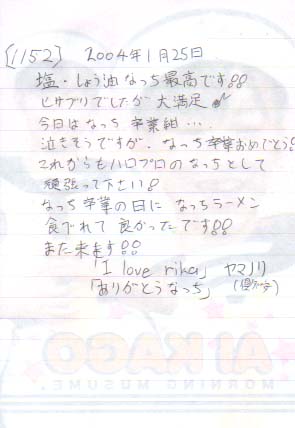 [1152] 2004年1月25日
塩・しょう油なっち最高です!!
ヒサブリでしたが大満足♪
今日はなっち卒業組…
泣きそうですが、なっち卒業おめでとう!
これからもハロプロのなっちとして
頑張って下さい!
なっち卒業の日に なっちラーメン
食べれて良かったです!!
また来ます!!
「I love rika」 ヤマノリ
「ありがとうなっち」
AI KAGO
MORNING MUSUME.